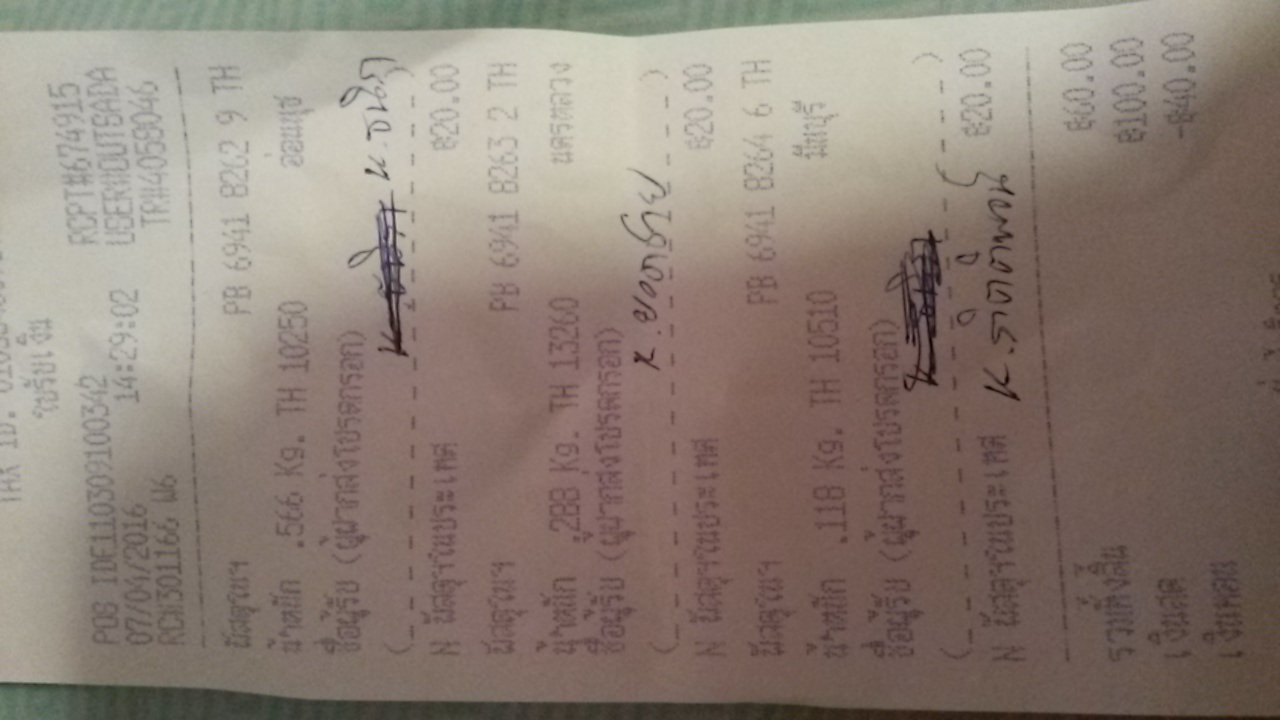 TAX ID.
ใบรับเงิน
POS IDE1103091003​42 RCPT#674915
07/04/2016 14:29:02 USER#OUTSADA
RCN301166 W6 TR#4058046
พัสดุในฯ PB 6941 8262 9 TH
น้ำหนัก .566 Kg. TH 10250 อ่อนนุช
ชื่อผู้รับ (ผู้ฝากส่งโปรดกรอก)
ค. ชนิดา
N พัสดุฯในประเทศ ฿20.00
พัสดุในฯ PB 6941 8263 2 TH
น้ำหนัก .288 Kg. TH 13260 นครหลวง
ชื่อผู้รับ (ผู้ฝากส่งโปรดกรอก)
ค. ยอดชาย
N พัสดุฯในประเทศ ฿20.00
พัสดุในฯ PB 6941 8264 6 TH
น้ำหนัก .118 Kg. TH 10510 มีนบุรี
ชื่อผู้รับ (ผู้ฝากส่งโปรดกรอก)
N พัสดุฯในประเทศ ฿20.00
รวมทั้งสิ้น ฿60.00
เงินสด ฿100.00
เงินทอน -฿40.00